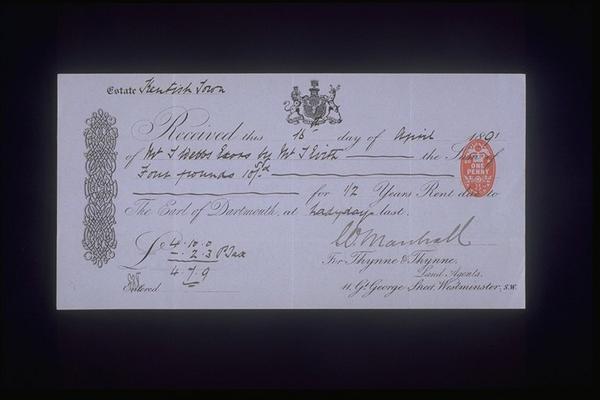 Estate Kentish Town
Received this 15th day of April 1891
of Mr T Webbs Exors by Mr T the Sum of
Four pounds 10/-
for 1/2 Years Rent due to
The Earl of Dartmouth, at Ladyday last.
£ 4.10.0
-. 2.3 P Tax
4.7.9
Entered
W. Marshall
For Thynne & Thynne,
Land Agents.
11, Gt. George Street, Westminster, S.W.
ONE
PENNY